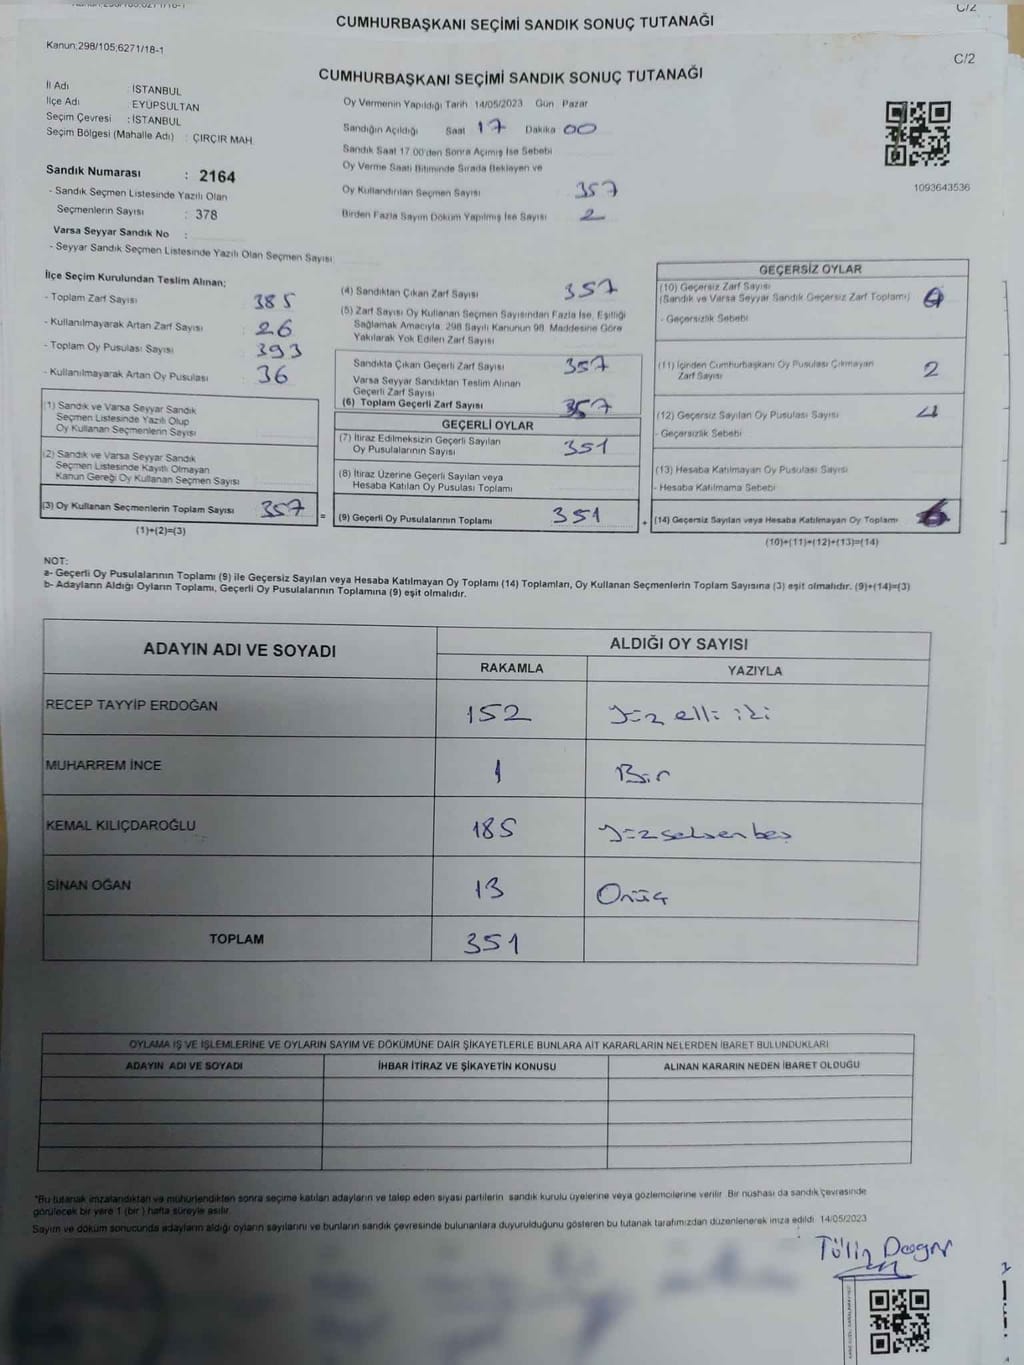 CUMHURBAŞKANI SEÇİMİ SANDIK SONUÇ TUTANAĞI
C/2
Kanun;298/105;6271/18-1
C/2
CUMHURBAŞKANI SEÇİMİ SANDIK SONUÇ TUTANAĞI
İl Adı : İSTANBUL
İlçe Adı : EYÜPSULTAN
Seçim Çevresi : İSTANBUL
Seçim Bölgesi (Mahalle Adı) : ÇIRÇIR MAH.
Sandık Numarası : 2164
- Sandık Seçmen Listesinde Yazılı Olan
Seçmenlerin Sayısı : 378
Varsa Seyyar Sandık No :
- Seyyar Sandık Seçmen Listesinde Yazılı Olan Seçmen Sayısı
Oy Vermenin Yapıldığı Tarih 14/05/2023 Gün Pazar
Sandığın Açıldığı Saat 17 Dakika 00
Sandık Saat 17.00'den Sonra Açımış İse Sebebi
Oy Verme Saati Bitiminde Sırada Bekleyen ve
Oy Kullandırılan Seçmen Sayısı 357
Birden Fazla Sayım Döküm Yapılmış İse Sayısı 2
1093643536
İlçe Seçim Kurulundan Teslim Alınan;
- Toplam Zarf Sayısı 385
- Kullanılmayarak Artan Zarf Sayısı 26
- Toplam Oy Pusulası Sayısı 393
- Kullanılmayarak Artan Oy Pusulası 36
(1) Sandık ve Varsa Seyyar Sandık
Seçmen Listesinde Yazılı Olup
Oy Kullanan Seçmenlerin Sayısı
(2) Sandık ve Varsa Seyyar Sandık
Seçmen Listesinde Kayıtlı Olmayan
Kanun Gereği Oy Kullanan Seçmen Sayısı
(3) Oy Kullanan Seçmenlerin Toplam Sayısı 357
(1)+(2)=(3)
=
(4) Sandıktan Çıkan Zarf Sayısı 357
(5) Zarf Sayısı Oy Kullanan Seçmen Sayısından Fazla İse, Eşitliği
Sağlamak Amacıyla, 298 Sayılı Kanunun 98. Maddesine Göre
Yakılarak Yok Edilen Zarf Sayısı
Sandıkta Çıkan Geçerli Zarf Sayısı 357
Varsa Seyyar Sandıktan Teslim Alınan
Geçerli Zarf Sayısı
(6) Toplam Geçerli Zarf Sayısı 357
GEÇERLİ OYLAR
(7) İtiraz Edilmeksizin Geçerli Sayılan
Oy Pusulalarının Sayısı 351
(8) İtiraz Üzerine Geçerli Sayılan veya
Hesaba Katılan Oy Pusulası Toplamı
(9) Geçerli Oy Pusulalarının Toplamı 351
+
GEÇERSİZ OYLAR
(10) Geçersiz Zarf Sayısı
(Sandık ve Varsa Seyyar Sandık Geçersiz Zarf Toplamı)
- Geçersizlik Sebebi
(11) İçinden Cumhurbaşkanı Oy Pusulası Çıkmayan
Zarf Sayısı 2
(12) Geçersiz Sayılan Oy Pusulası Sayısı 4
- Geçersizlik Sebebi
(13) Hesaba Katılmayan Oy Pusulası Sayısı
- Hesaba Katılmama Sebebi
(14) Geçersiz Sayılan veya Hesaba Katılmayan Oy Toplamı 6
(10)+(11)+(12)+(13)=(14)
NOT:
a- Geçerli Oy Pusulalarının Toplamı (9) ile Geçersiz Sayılan veya Hesaba Katılmayan Oy Toplamı (14) Toplamları, Oy Kullanan Seçmenlerin Toplam Sayısına (3) eşit olmalıdır. (9)+(14)=(3)
b- Adayların Aldığı Oyların Toplamı, Geçerli Oy Pusulalarının Toplamına (9) eşit olmalıdır.
ADAYIN ADI VE SOYADI
ALDIĞI OY SAYISI
RAKAMLA YAZIYLA
RECEP TAYYİP ERDOĞAN 152 Yüz elli iki
MUHARREM İNCE 1 Bir
KEMAL KILIÇDAROĞLU 185 Yüzseksenbeş
SİNAN OĞAN 13 Onüç
TOPLAM 351
OYLAMA İŞ VE İŞLEMLERİNE VE OYLARIN SAYIM VE DÖKÜMÜNE DAİR ŞİKAYETLERLE BUNLARA AİT KARARLARIN NELERDEN İBARET BULUNDUKLARI
ADAYIN ADI VE SOYADI İHBAR İTİRAZ VE ŞİKAYETİN KONUSU ALINAN KARARIN NEDEN İBARET OLDUĞU
*Bu tutanak imzalandıktan ve mühürlendikten sonra seçime katılan adayların ve talep eden siyasi partilerin sandık kurulu üyelerine veya gözlemcilerine verilir. Bir nüshası da sandık çevresinde
görülecek bir yere 1 (bir ) hafta süreyle asılır.
Sayım ve döküm sonucunda adayların aldığı oyların sayılarını ve bunların sandık çevresinde bulunanlara duyurulduğunu gösteren bu tutanak tarafımızdan düzenlenerek imza edildi. 14/05/2023
Tülin